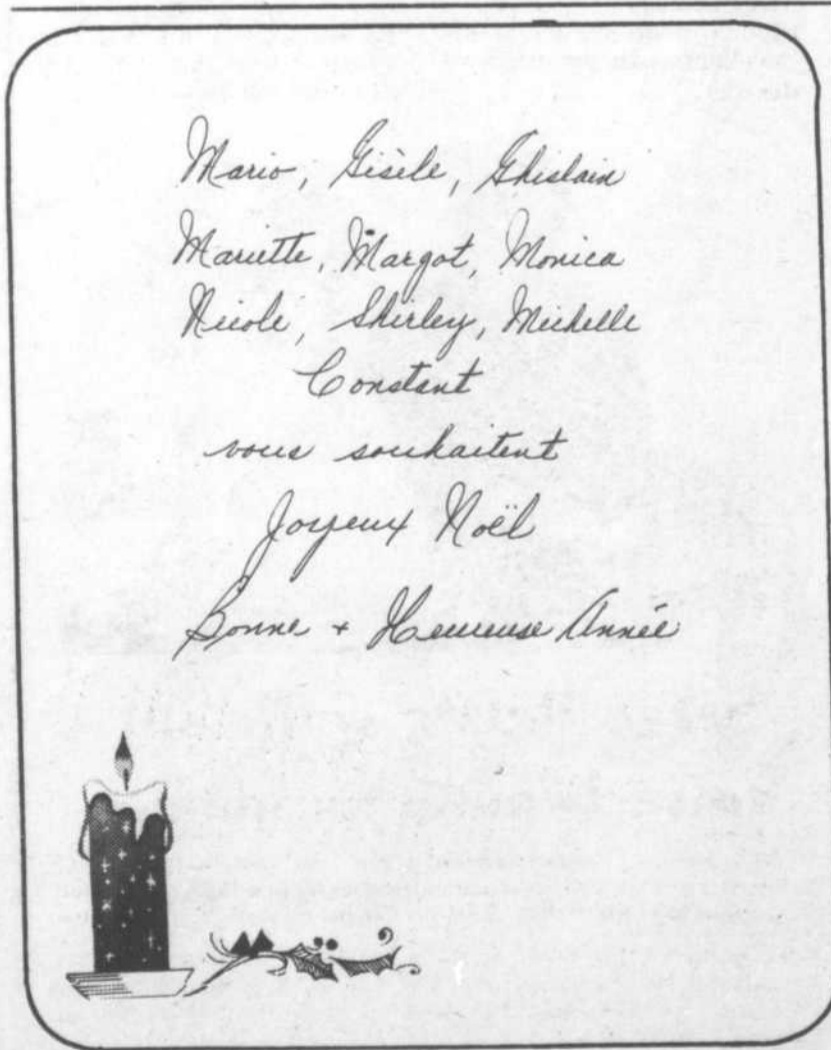 Mario, Gisèle, Ghislain
Mariette, Margot, Monica
Nicole, Shirley, Michelle
Constant
vous souhaitent
Joyeux Noël
Bonne + Heureuse Année